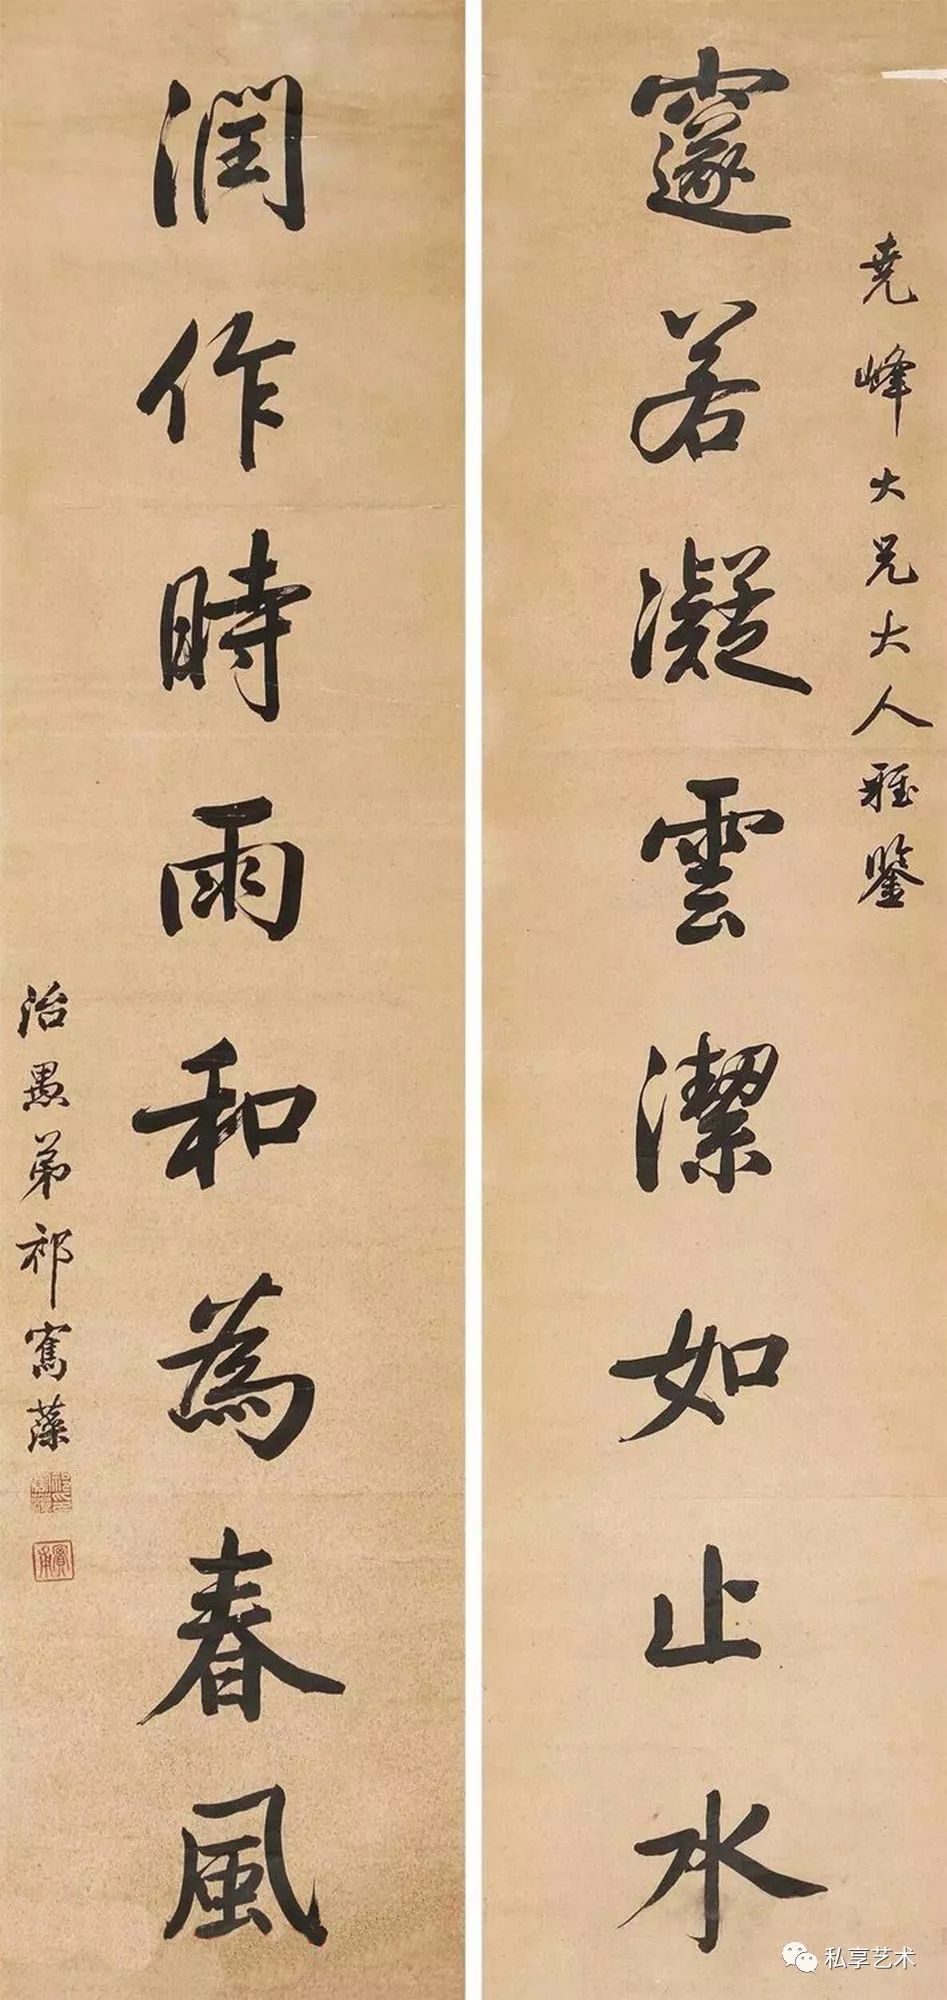 堯峰大兄大人雅鑒
邃若凝雲潔如止水
潤作時雨和為春風
治愚弟祁寯藻
私享艺术